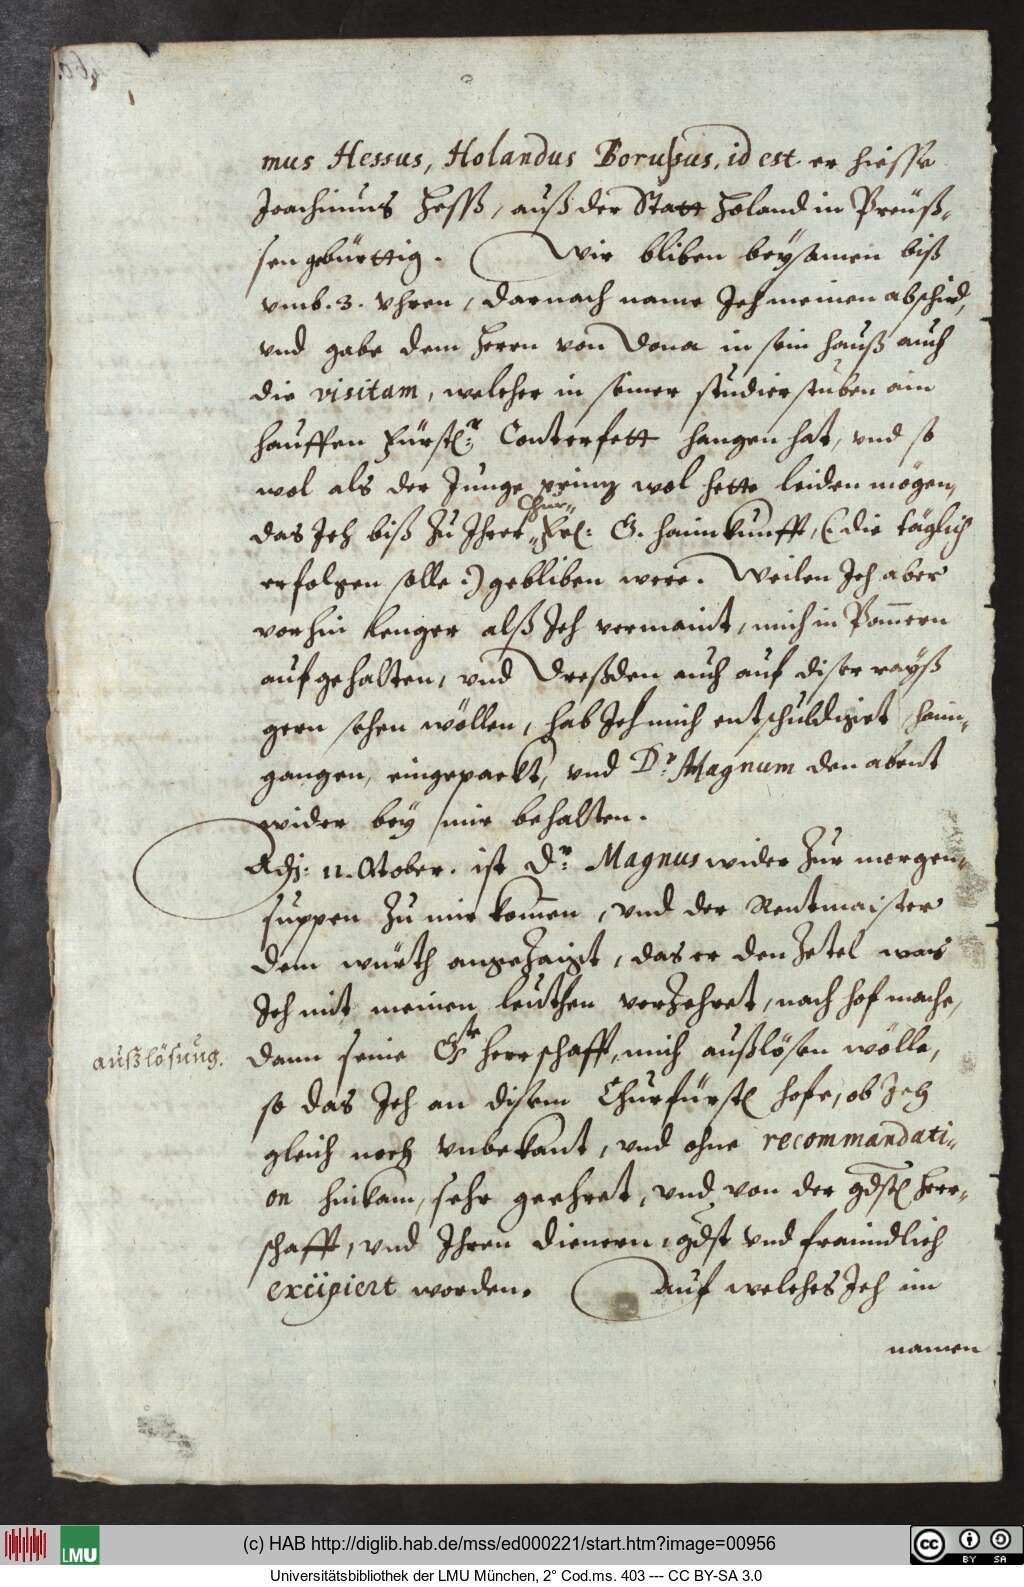 mus Hessus, Holandus Borussus, id est er hiesse
Joachimus Hess, auß der Statt Holand in Preüß-
sen gebürttig. Wir bliben beÿsamen biß
vmb .3. Vhren, darnach name Ich meinen abschid,
vnd gabe dem Herrn von Dona in sein hauß auch
die visitam, welcher in seiner studier stuben ain
hauffen Fürstl: Conterfett hangen hat, vnd so
wol als der Junge prinz wol hette leiden mögen,
das Ich biß zu Ihrer Chur- Frl: G. haimkunfft, (: die täglich
erfolgen solle :) gebliben were. Weilen Ich aber
vorhin lenger alß Ich vermaint, mich in Pom̄ern
aufgehalten, vnd Dreßden auch auf diser rayß
gern sehen wöllen, hab Ich mich entschuldiget haim-
gangen, eingepackt, vnd Dr: Magnum den abent
wider beÿ mir behalten.
Adj: 11. October. ist Dr: Magnus wider zur morgen-
suppen zu mir kom̄en, vnd der Rentmaister
dem würth angezaigt, das er den Zetel was
Ich mit meinen leuthen verzehret, nach hof mache,
außlösung.
dann seine Gste herrschafft, mich außlösen wölle,
so das Ich an disem Churfürstl hofe, ob Ich
gleich noch vnbekant, vnd ohne recommandati-
on hinkam, sehr geehret, vnd von der gdstl Herr-
schafft, vnd Ihren dienern, gdst vnd fraindlich
excipiert worden. Auf welches Ich im
namen
(c) HAB http://diglib.hab.de/mss/ed000221/start.htm?image=00956
LMU
cc BY SA
Universitätsbibliothek der LMU München, 2° Cod.ms. 403 --- CC BY-SA 3.0